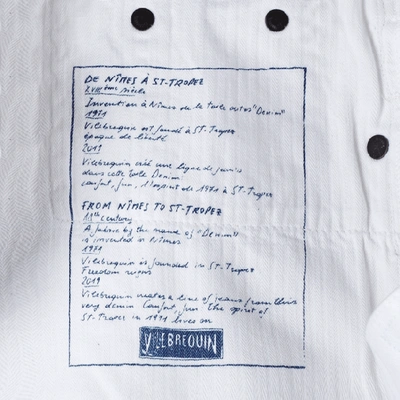 DE NÎMES À ST-TROPEZ
XVIIIème siècle
Invention à Nîmes de la toile "Denim"
1971
Vilebrequin est fondé à ST-Tropez
époque de liberté
2019
Vilebrequin crée une ligne de jeans
dans cette toile Denim
confort, fun, l'esprit de 1971 à ST-Tropez
FROM NÎMES TO ST-TROPEZ
18th century
A fabric by the name of "Denim"
is invented in Nîmes
1971
Vilebrequin is founded in ST-Tropez
Freedom
2019
Vilebrequin creates a line of jeans from this
very denim Comfort, fun the spirit of
ST-Tropez in 1971 lives on
VILEBREQUIN